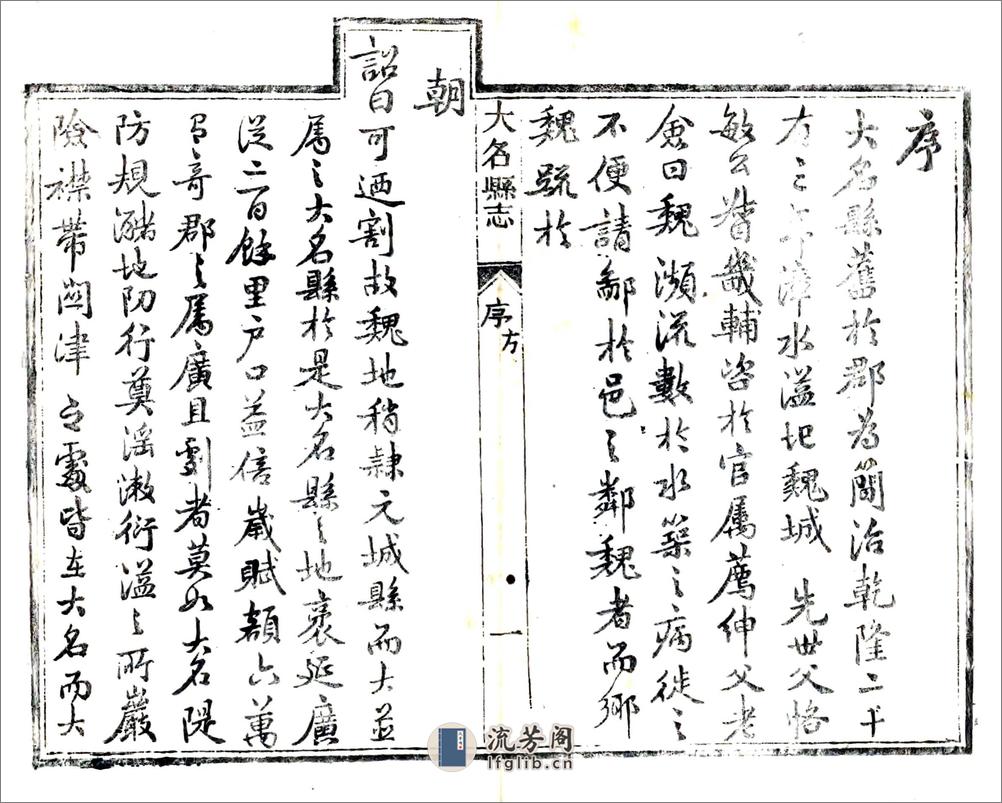 序
大名縣舊於郡為簡治乾隆二十
有三年漳水溢圮魏城 先世父恪
敏公督畿輔咨於官屬薦紳父老
僉曰魏瀕流數於水築之病徙之
不便請鄙於邑之鄰魏者而鄉
魏疏於
大名縣志
序方
一
朝
詔曰可迺割故魏地稍隸元城縣而大並
属之大名縣於是大名縣之地袤延廣
從二百餘里户口益倍歲賦額六萬
有奇郡之属廣且劇者莫如大名隄
防規潴地防行奠滛潄衍溢之所巖
險襟帶関津之處皆在大名而大
流芳阁
lfglib.cn